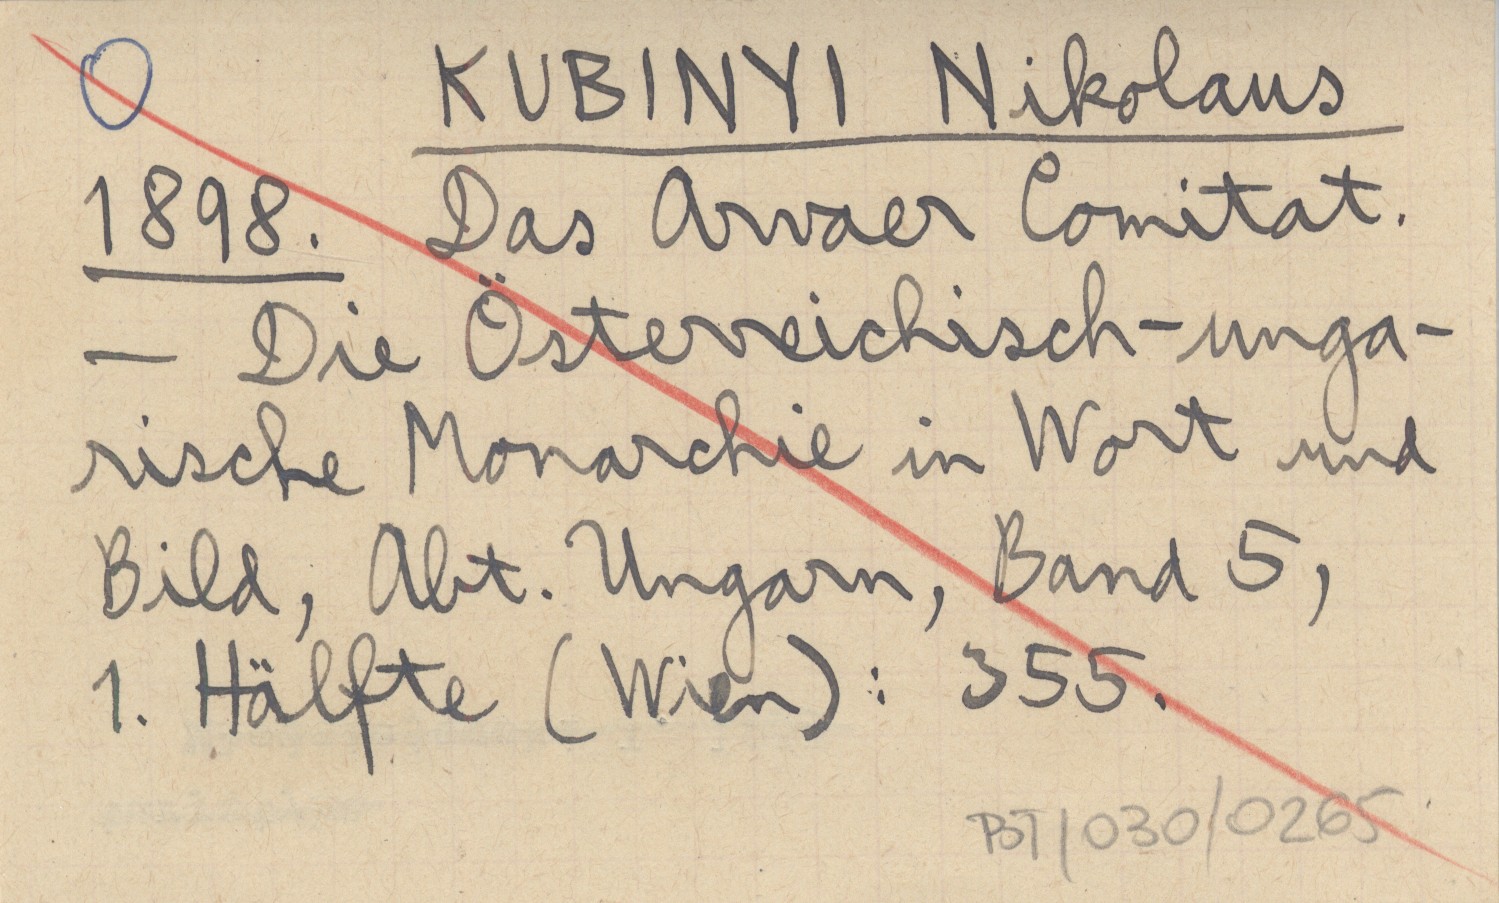 KUBINYI Nikolaus
1898. Das Arvaer Comitat.
— Die Österreichisch-unga-
rische Monarchie in Wort und
Bild, Abt. Ungarn, Band 5,
1. Hälfte (Wien): 355.
PBT/030/0265